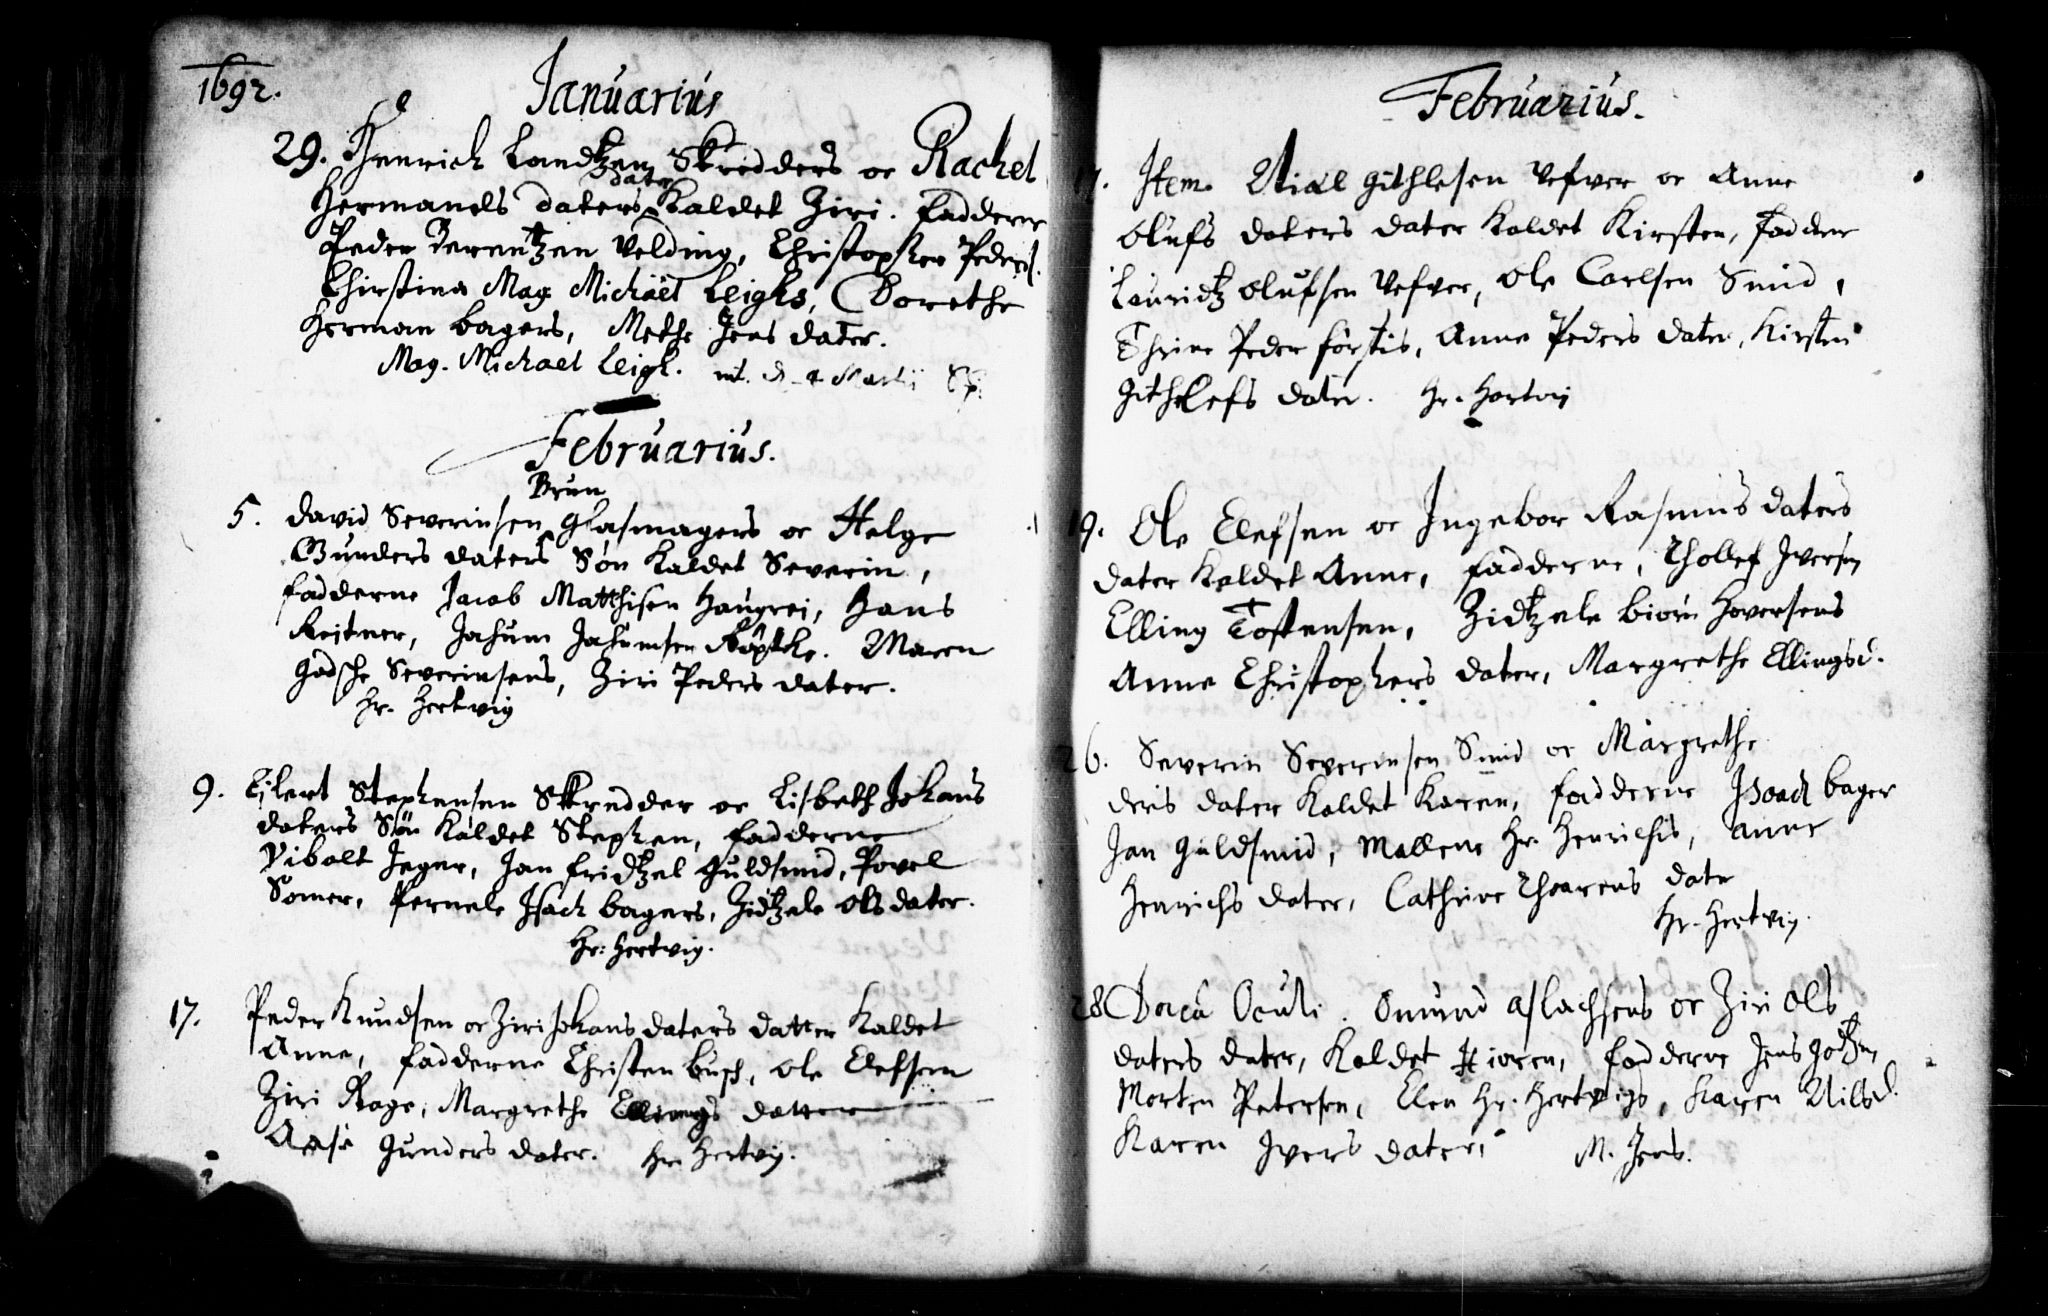 1692.
Januarius
29. Henrich Landtzen Skredders oc Rachel
dater
Hermands daters Kaldet Ziri. Fadderne
Peder Berentzen Velding, Christopher Peders.
Christina Mag Michael Leighs, Dorethe
Herman bagers, Methe Jens dater.
Mag. Michael Leigh.
Februarius.
Brun
5. David Severinsen Glasmagers oc Helge
Gunders daters Søn Kaldet Severin,
fadderne Jacob Matthisen Haugrei, Hans
Reitmer, Jahum Jahumsen Maren
Severinsens, Ziri Peders dater.
Hr. Hertvig
9. Eilert Stephensen Skredder oc Lisbeth Johans
daters Søn Kaldet Stephen, fadderne
Vibolt Jeger, Jan fridtzel Guldsmid, Povel
Somer, Pernele Isach bagers, Zidtzele Ols dater.
Hr: Hertvig.
17. Peder Knudsen oc Ziri Johans daters datter Kaldet
Anne, fadderne Christen Busch, Ole Elefsen
Ziri Roge, Margrethe Ellings datter
Aase Gunders dater. Hr Hertvig.
Februarius.
17. Item. Githlesen Vefver oc Anne
Olufs daters dater Kaldet Kirsten, fadderne
Lauridtz Olufsen Vefver, Ole Carlsen Smid,
Thrine Peder Anne Peders dater, Kirsten
Githlefs dater. Hr. Hertvig
19. Ole Elefsen oc Ingebor Rasmus daters
dater Kaldet Anne, fadderne, Thollef Iversen
Elling Tostensen, Zidtzele Biørn Hoversens
Anne Christophers dater, Margrethe Ellingsd.
26. Severin Severinsen Smid oc Margrethe
ders dater Kaldet Karen, fadderne Isaach bager
Jan Guldsmid, Mallene Hr. Henrichs, Anne
Henrichs dater, Cathrine dater
Hr. Hertvig.
28 Oculi. Omund Aslachsens oc Ziri Ols
daters dater, Kaldet fadderne Jens
Morten Petersen, Elen Hr. Hertvigs, Karen Nilsd.
Karen Ivers dater, M. Jens.